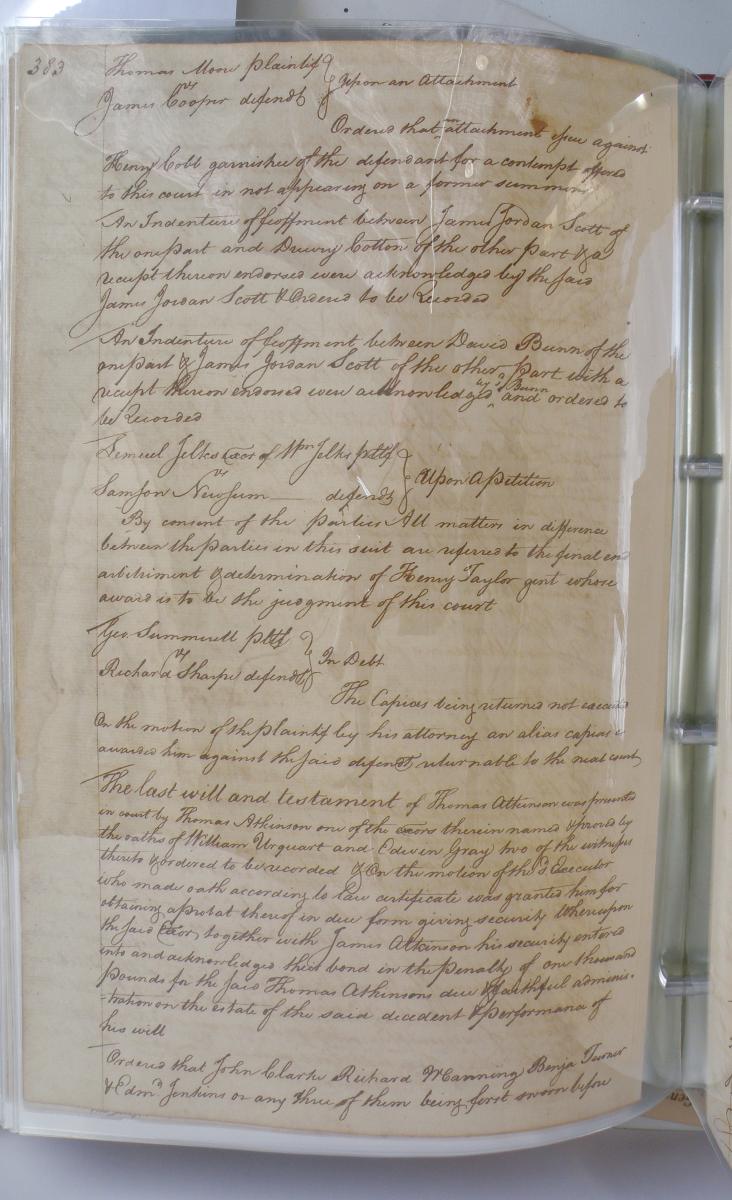 383
Thomas Moore plaintif
vs
James Cooper defendt
Upon an Attachment
Ordered that attachment issue against
Henry Cobb garnishee of the defendant for a contempt offered
to this court in not appearing on a former summons
An Indenture of feoffment between James Jordan Scott of
the one part and Drewry Cotton of the other part & a
receipt thereon endorsed were acknowledged by the said
James Jordan Scott & Ordered to be Recorded
An Indenture of feoffment between David Bunn of the
one part & James Jordan Scott of the other part with a
receipt thereon endorsed were acknowledged by sd Bunn and ordered to
be Recorded
Lemuel Jelks Exor of Wm Jelks pltf
vs
Samson Newsum defendt
Upon a petition
By consent of the parties All matters in difference
between the parties in this suit are referred to the final end
arbitriment & determination of Henry Taylor gent whose
award is to be the judgment of this court
Geo. Summerell pltf
vs
Richard Sharpe defendt
In Debt
The Capias being returned not executed
On the motion of the plaintif by his attorney an alias capias is
awarded him against the said defendt returnable to the next court
The last will and testament of Thomas Atkinson was presented
in court by Thomas Atkinson one of the exors therein named & proved by
the oaths of William Urquart and Edwin Gray two of the witnesses
thereto & ordered to be recorded & On the motion of the sd Executor
who made oath according to law certificate was granted him for
obtaining a probat thereof in due form giving security Whereupon
the said Exor together with James Atkinson his security entered
into and acknowledged their bond in the penalty of one thousand
pounds for the said Thomas Atkinsons due & faithful adminis-
-tration on the estate of the said decedent & performance of
his will
Ordered that John Clarke Richard Manning Benja Turner
& Edmd Jenkins or any three of them being first sworn before